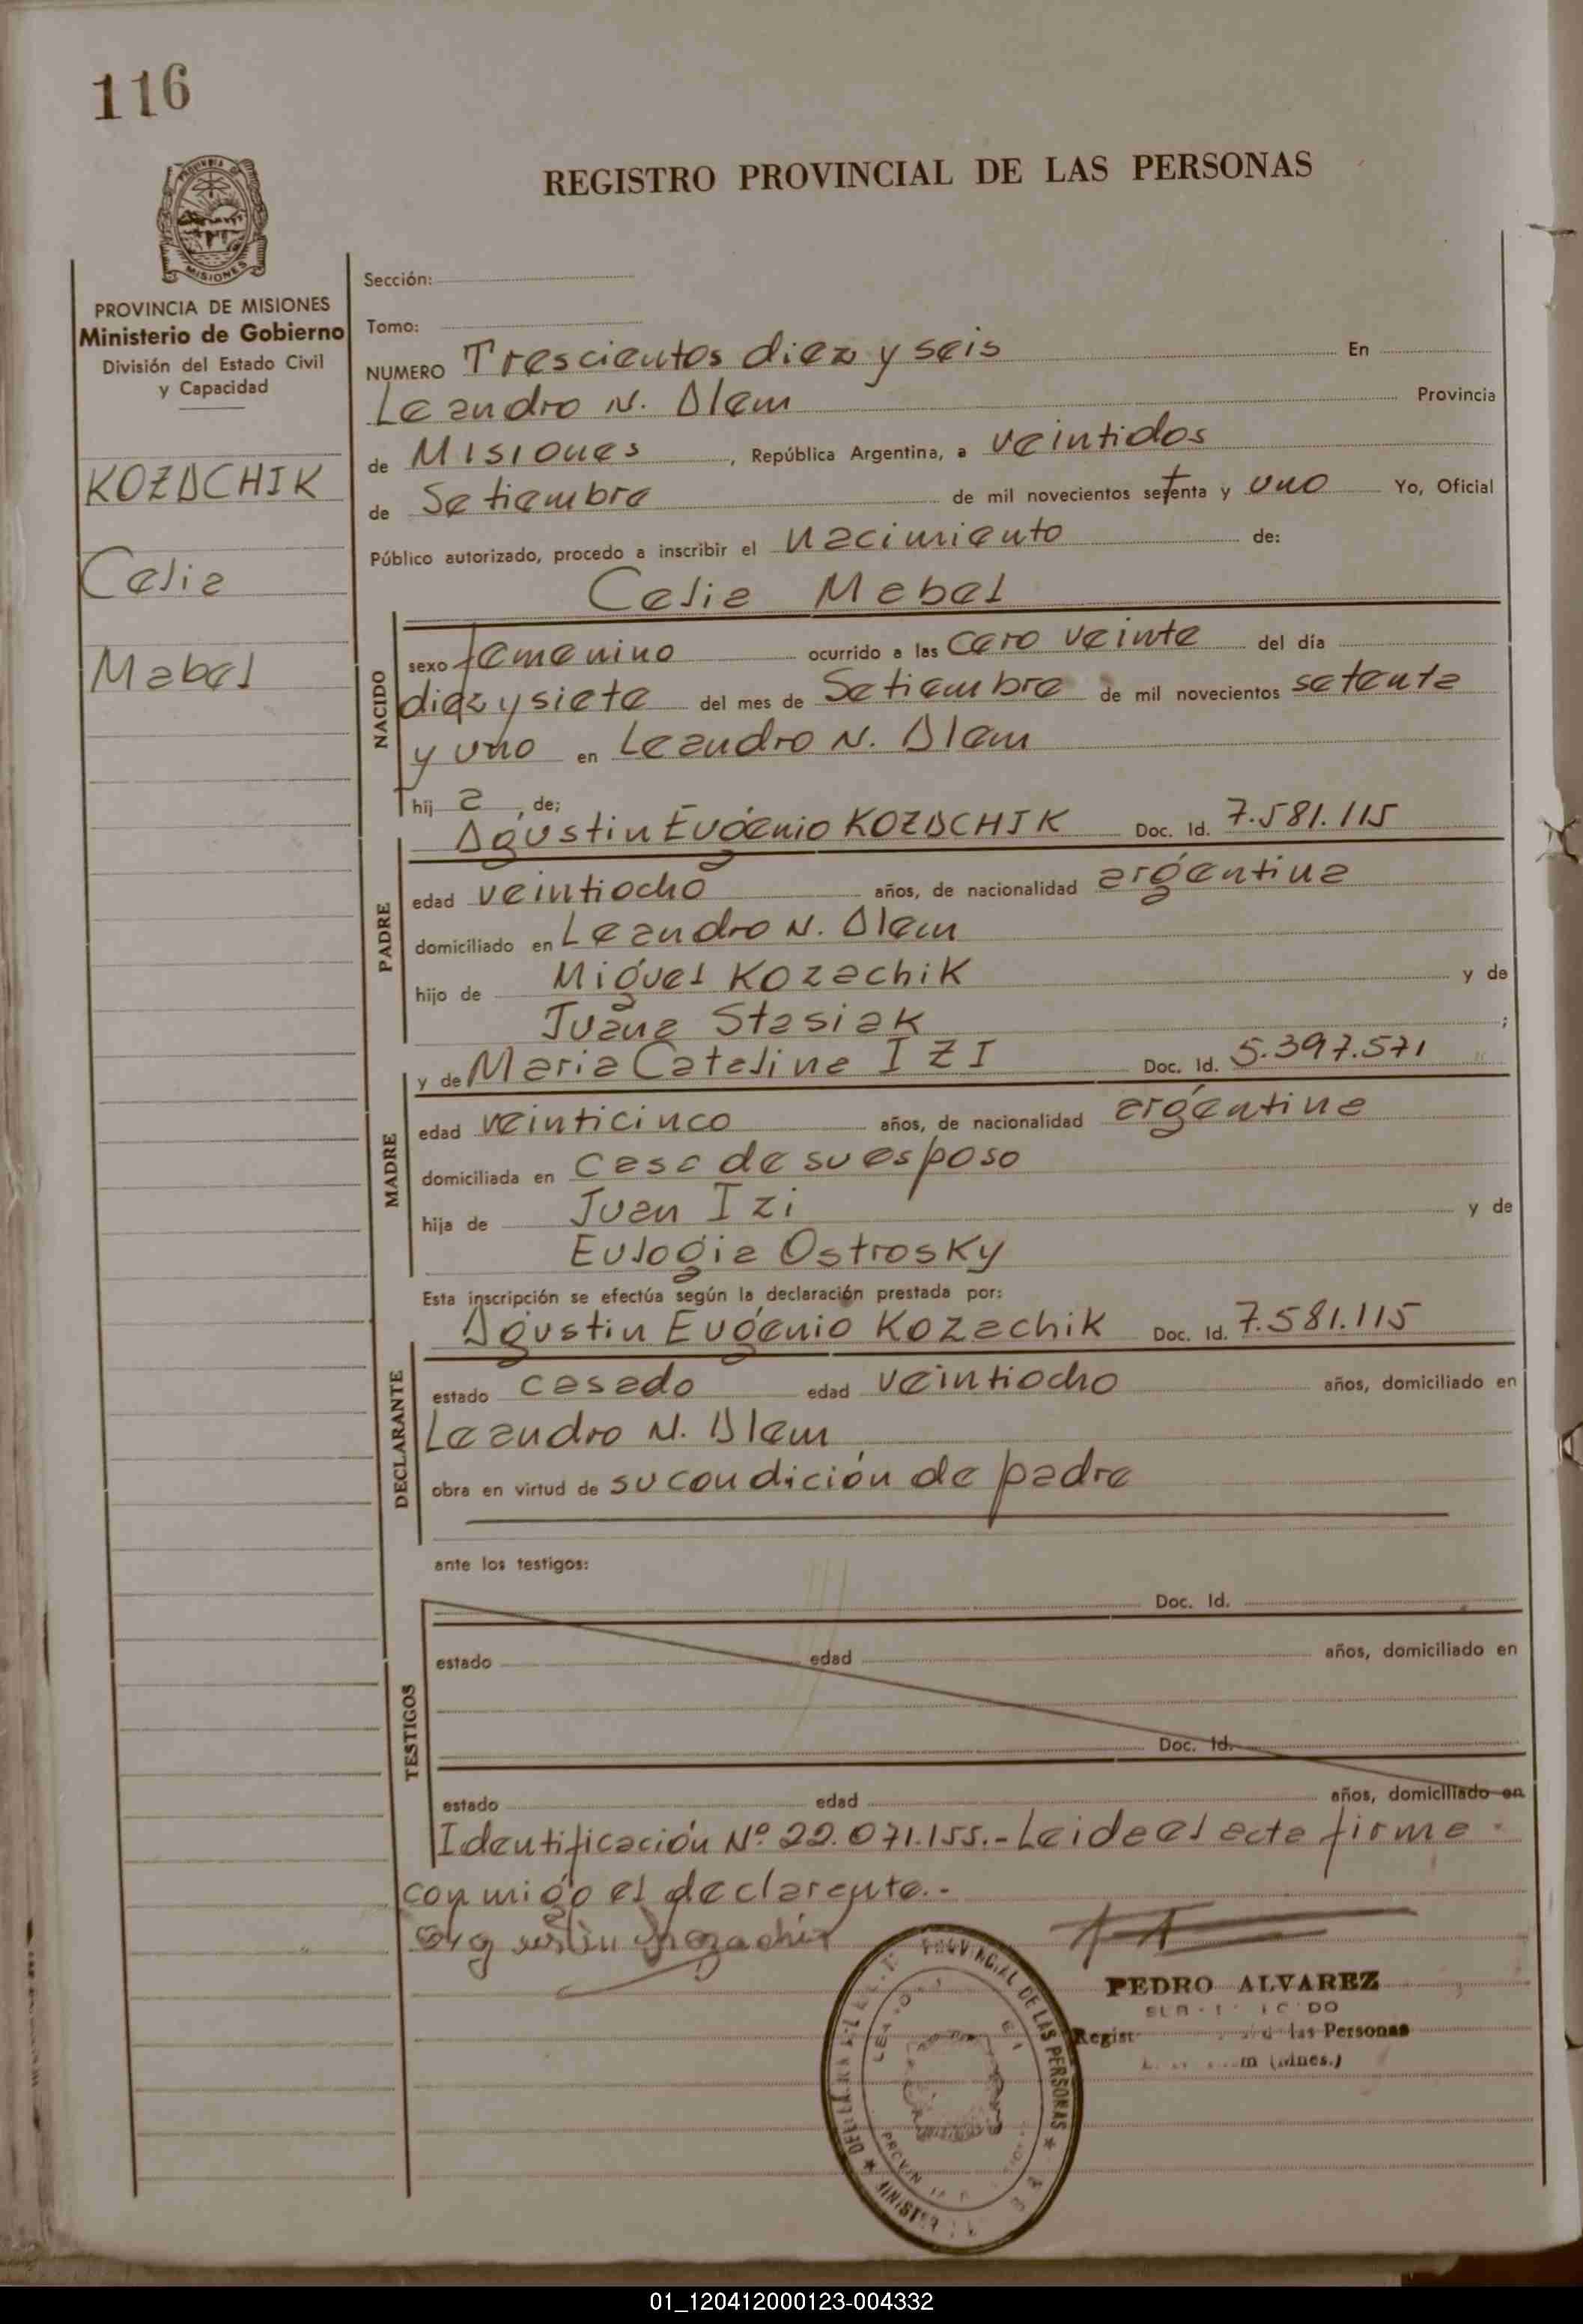 116
REGISTRO PROVINCIAL DE LAS PERSONAS
MISIONES
PROVINCIA DE MISIONES
Ministerio de Gobierno
División del Estado Civil
y Capacidad
KOZACHIK
Celia
Mabel
Sección:
Tomo:
NUMERO Trescientos diez y seis En
Leandro N. Alem Provincia
de Misiones, República Argentina, a veintidos
de Setiembre de mil novecientos setenta y uno Yo, Oficial
Público autorizado, procedo a inscribir el nacimiento de:
Celia Mabel
NACIDO
sexo femenino ocurrido a las cero veinte del día
diez y siete del mes de Setiembre de mil novecientos setenta
y uno en Leandro N. Alem
hij a, de:
Agustin Eugenio KOZACHIK Doc. Id. 7.581.115
PADRE
edad veintiocho años, de nacionalidad argentina
domiciliado en Leandro N. Alem
hijo de Miguel Kozachik y de
Juana Stasiak ;
y de Maria Catalina IZI Doc. Id. 5.397.571
MADRE
edad veinticinco años, de nacionalidad argentina
domiciliada en casa de su esposo
hija de Juan Izi y de
Eulogia Ostrosky
Esta inscripción se efectúa según la declaración prestada por:
Agustin Eugenio Kozachik Doc. Id. 7.581.115
DECLARANTE
estado casado edad veintiocho años, domiciliado en
Leandro N. Alem
obra en virtud de su condición de padre
ante los testigos:
Doc. Id.
TESTIGOS
estado edad años, domiciliado en
Doc. Id.
estado edad años, domiciliado en
Identificación Nº 22.071.155.- Leida el acta firma
conmigo el declarante.-
Agustin Kozachik
PROVINCIAL DE LAS PERSONAS
PEDRO ALVAREZ
las Personas
(Mnes.)
01_120412000123-004332